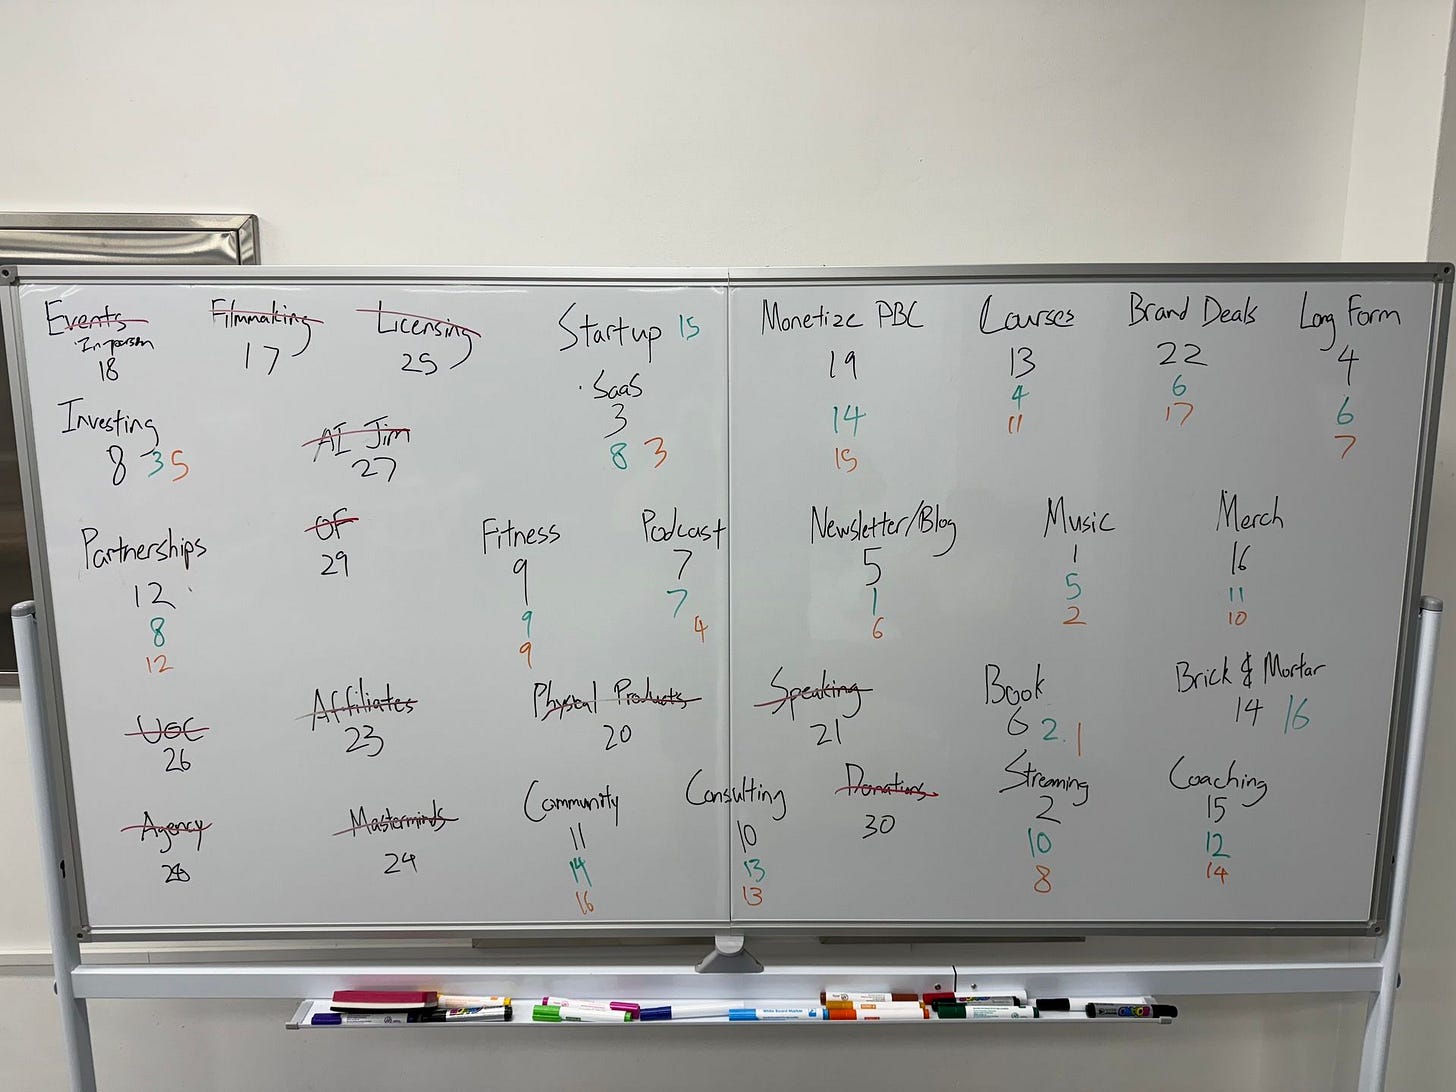 Events
· In-person
18
Filmmaking
17
Licensing
25
Startup 15
· SaaS
3
8 3
Monetize PBC
19
14
15
Courses
13
4
11
Brand Deals
22
6
17
Long Form
4
6
7
Investing
8 3 5
AI Jim
27
Partnerships
12
8
12
OF
29
Fitness
9
9
9
Podcast
7
7
4
Newsletter/Blog
5
1
6
Music
1
5
2
Merch
16
11
10
UGC
26
Affiliates
23
Physcal Products
20
Speaking
21
Book
6 2. 1
Brick & Mortar
14 16
Agency
28
Masterminds
24
Community
11
14
16
Consulting
10
13
13
Donations
30
Streaming
2
10
8
Coaching
15
12
14